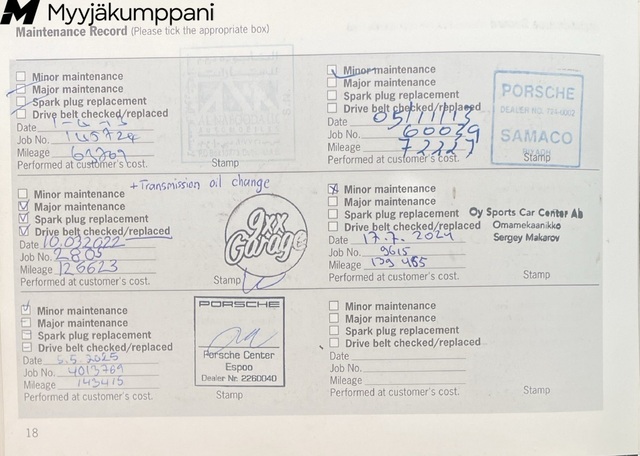 Myyjäkumppani
Maintenance Record (Please tick the appropriate box)
Minor maintenance
Major maintenance
Spark plug replacement
Drive belt checked/replaced
Date
Job No. 145724
Mileage 63709
Performed at customer's cost.
Stamp
Minor maintenance
Major maintenance
Spark plug replacement
Drive belt checked/replaced
Date 05/11/13
Job No. 60039
Mileage 72227
Performed at customer's cost.
PORSCHE
SAMACO
Stamp
+Transmission oil change
Minor maintenance
Major maintenance
Spark plug replacement
Drive belt checked/replaced
Date 10.032022
Job No. 2805
Mileage 126623
Performed at customer's cost.
9xx
Garage
Stamp
Minor maintenance
Major maintenance
Spark plug replacement
Drive belt checked/replaced
Date 17.7.2024
Job No. 9615
Mileage 139 455
Performed at customer's cost.
Oy Sports Car Center Ab
Omamekaanikko
Sergey Makarov
Stamp
Minor maintenance
Major maintenance
Spark plug replacement
Drive belt checked/replaced
Date 5.5.2025
Job No. 4013769
Mileage 143415
Performed at customer's cost.
PORSCHE
Porsche Center
Espoo
Dealer Nr. 2260040
Stamp
Minor maintenance
Major maintenance
Spark plug replacement
Drive belt checked/replaced
Date
Job No.
Mileage
Performed at customer's cost.
Stamp
18